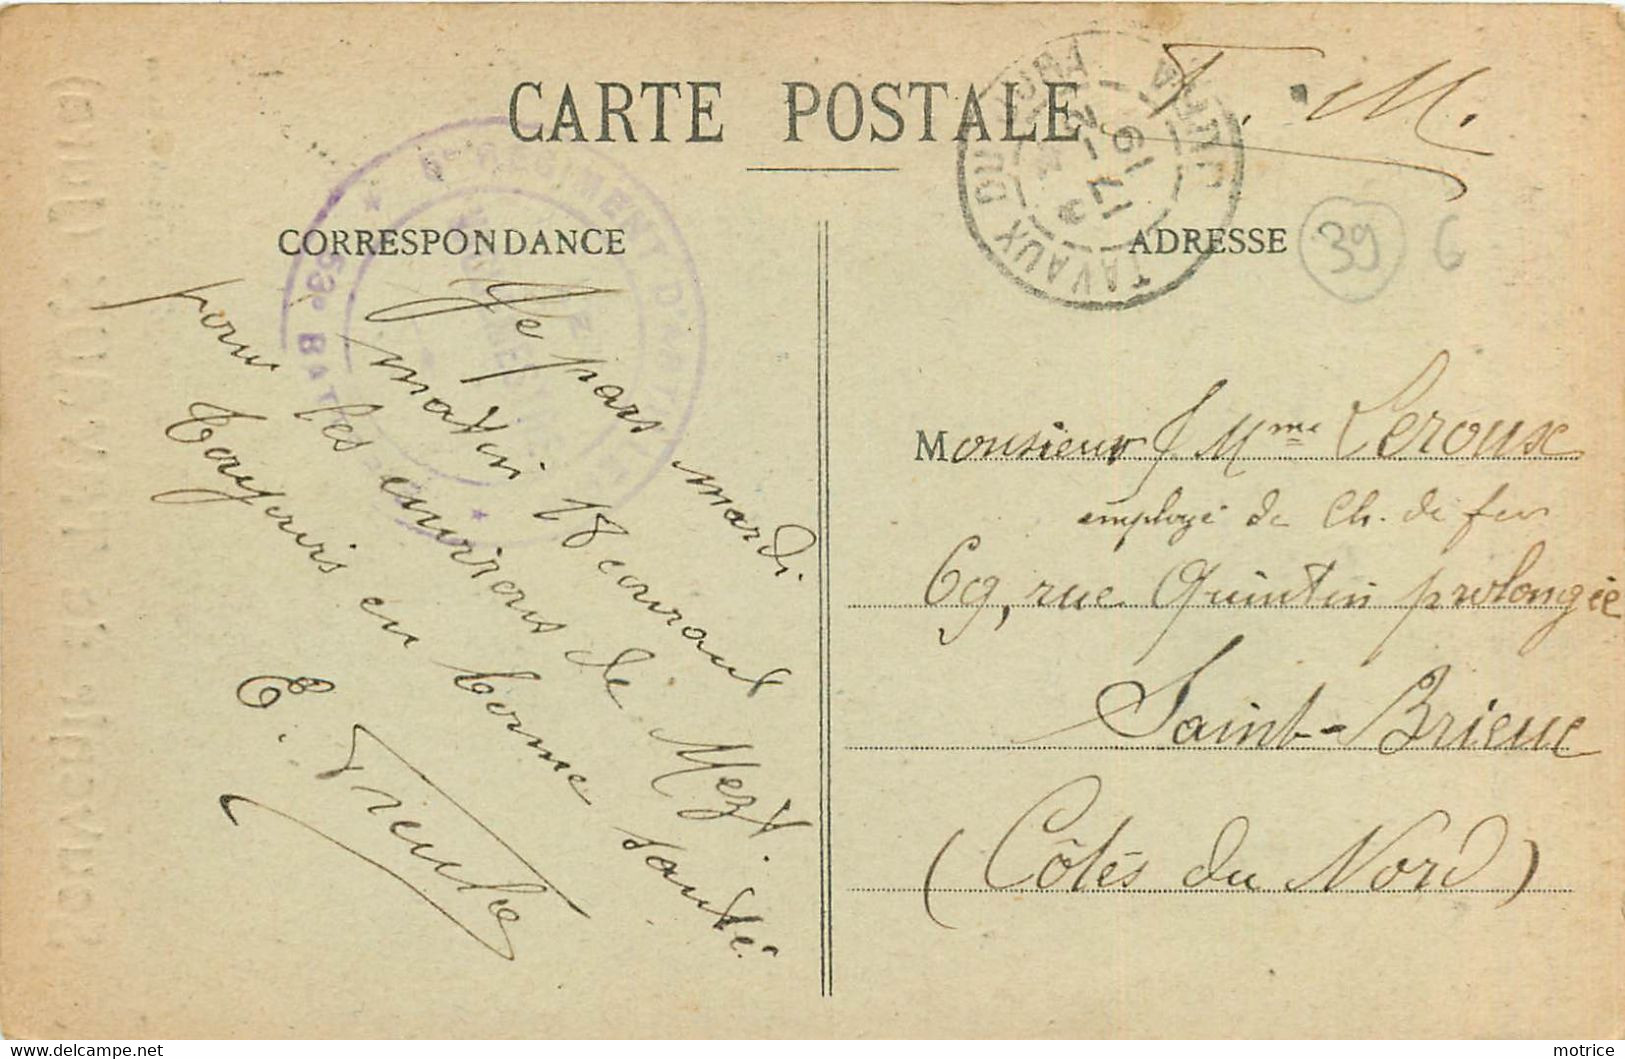 CARTE POSTALE
F. M.
CORRESPONDANCE
ADRESSE
39
6
TAVAUX DU JURA
17 - 2
19
RÉGIMENT D'ARTIE
53e BAT
Je pars mardi
matin 18 courant
pour les environs de Mezt.
Toujours en bonne santé.
E.
Monsieur & Mme Leroux
employé de Ch. de fer
69, rue Quintin prolongée
Saint-Brieuc
(Côtés du Nord)
https://www.delcampe.net
motrice